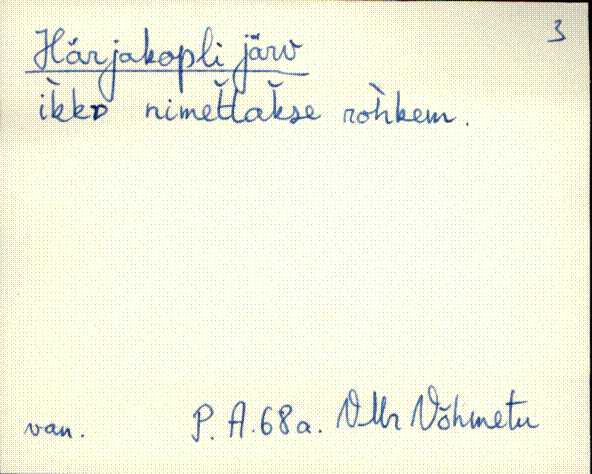 3
Härjakopli järv
ìkkᴅ nimet̆t̆ak̆se roh̀kem.
van. P. A. 68 a. VMr Võhmetu